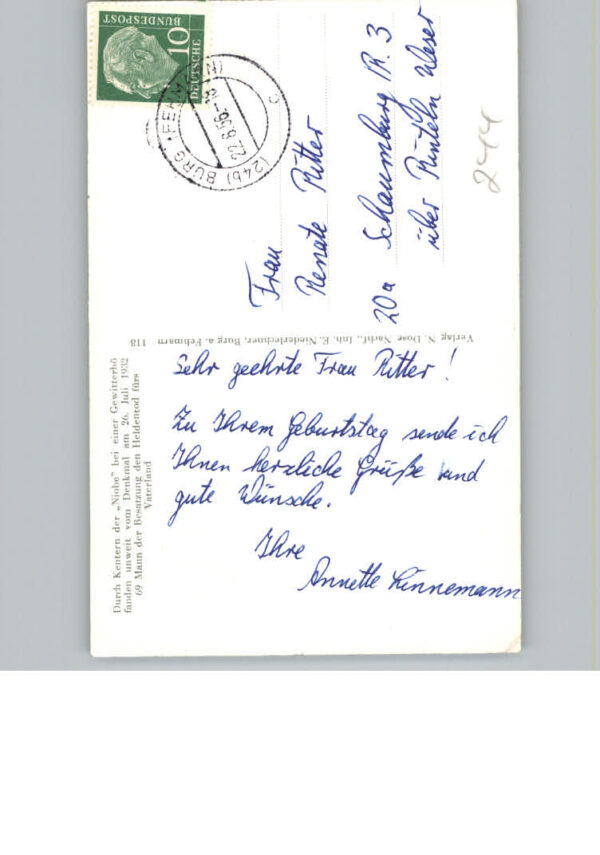 Durch Kentern der „Niobe" bei einer Gewitterbö
fanden unweit vom Denkmal am 26. Juli 1932
69 Mann der Besatzung den Heldentod fürs
Vaterland
Sehr geehrte Frau Ritter!
Zu Ihrem Geburtstag sende ich
Ihnen herzliche Grüße und
gute Wünsche.
Ihre
Annette Linnemann
Verlag N. Dose Nachf., Inh. E. Niederlechner, Burg a. Fehmarn 118
DEUTSCHE
BUNDESPOST
10
(24b) BURG (FEHMARN)
22.8.56
c
Frau
Renate Ritter
20a Schaumburg /R. 3
über Rinteln Weser
244